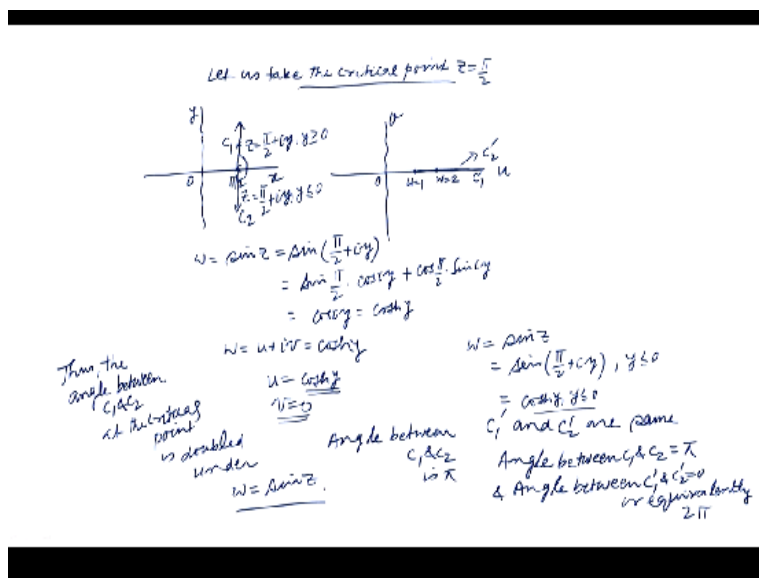 Let us take the critical point z = π/2
y
C₁ z = π/2 + iy, y ≥ 0
0
π/2
x
z = π/2 + iy, y ≤ 0
C₂
v
0
u=1
u=2
C₂'
C₁'
u
w = sin z = sin(π/2 + iy)
= sin π/2 . cos iy + cos π/2 . sin iy
= cos iy = cosh y
w = u + iv = cosh y
u = cosh y
v = 0
Thus, the
angle between
C₁ & C₂
at the critical
point
is doubled
under
w = sin z.
Angle between
C₁ & C₂
is π
w = sin z
= sin(π/2 + iy), y ≤ 0
= cosh y, y ≤ 0
C₁' and C₂' are same
Angle between C₁ & C₂ = π
& Angle between C₁' & C₂' = 0
or equivalently
2π